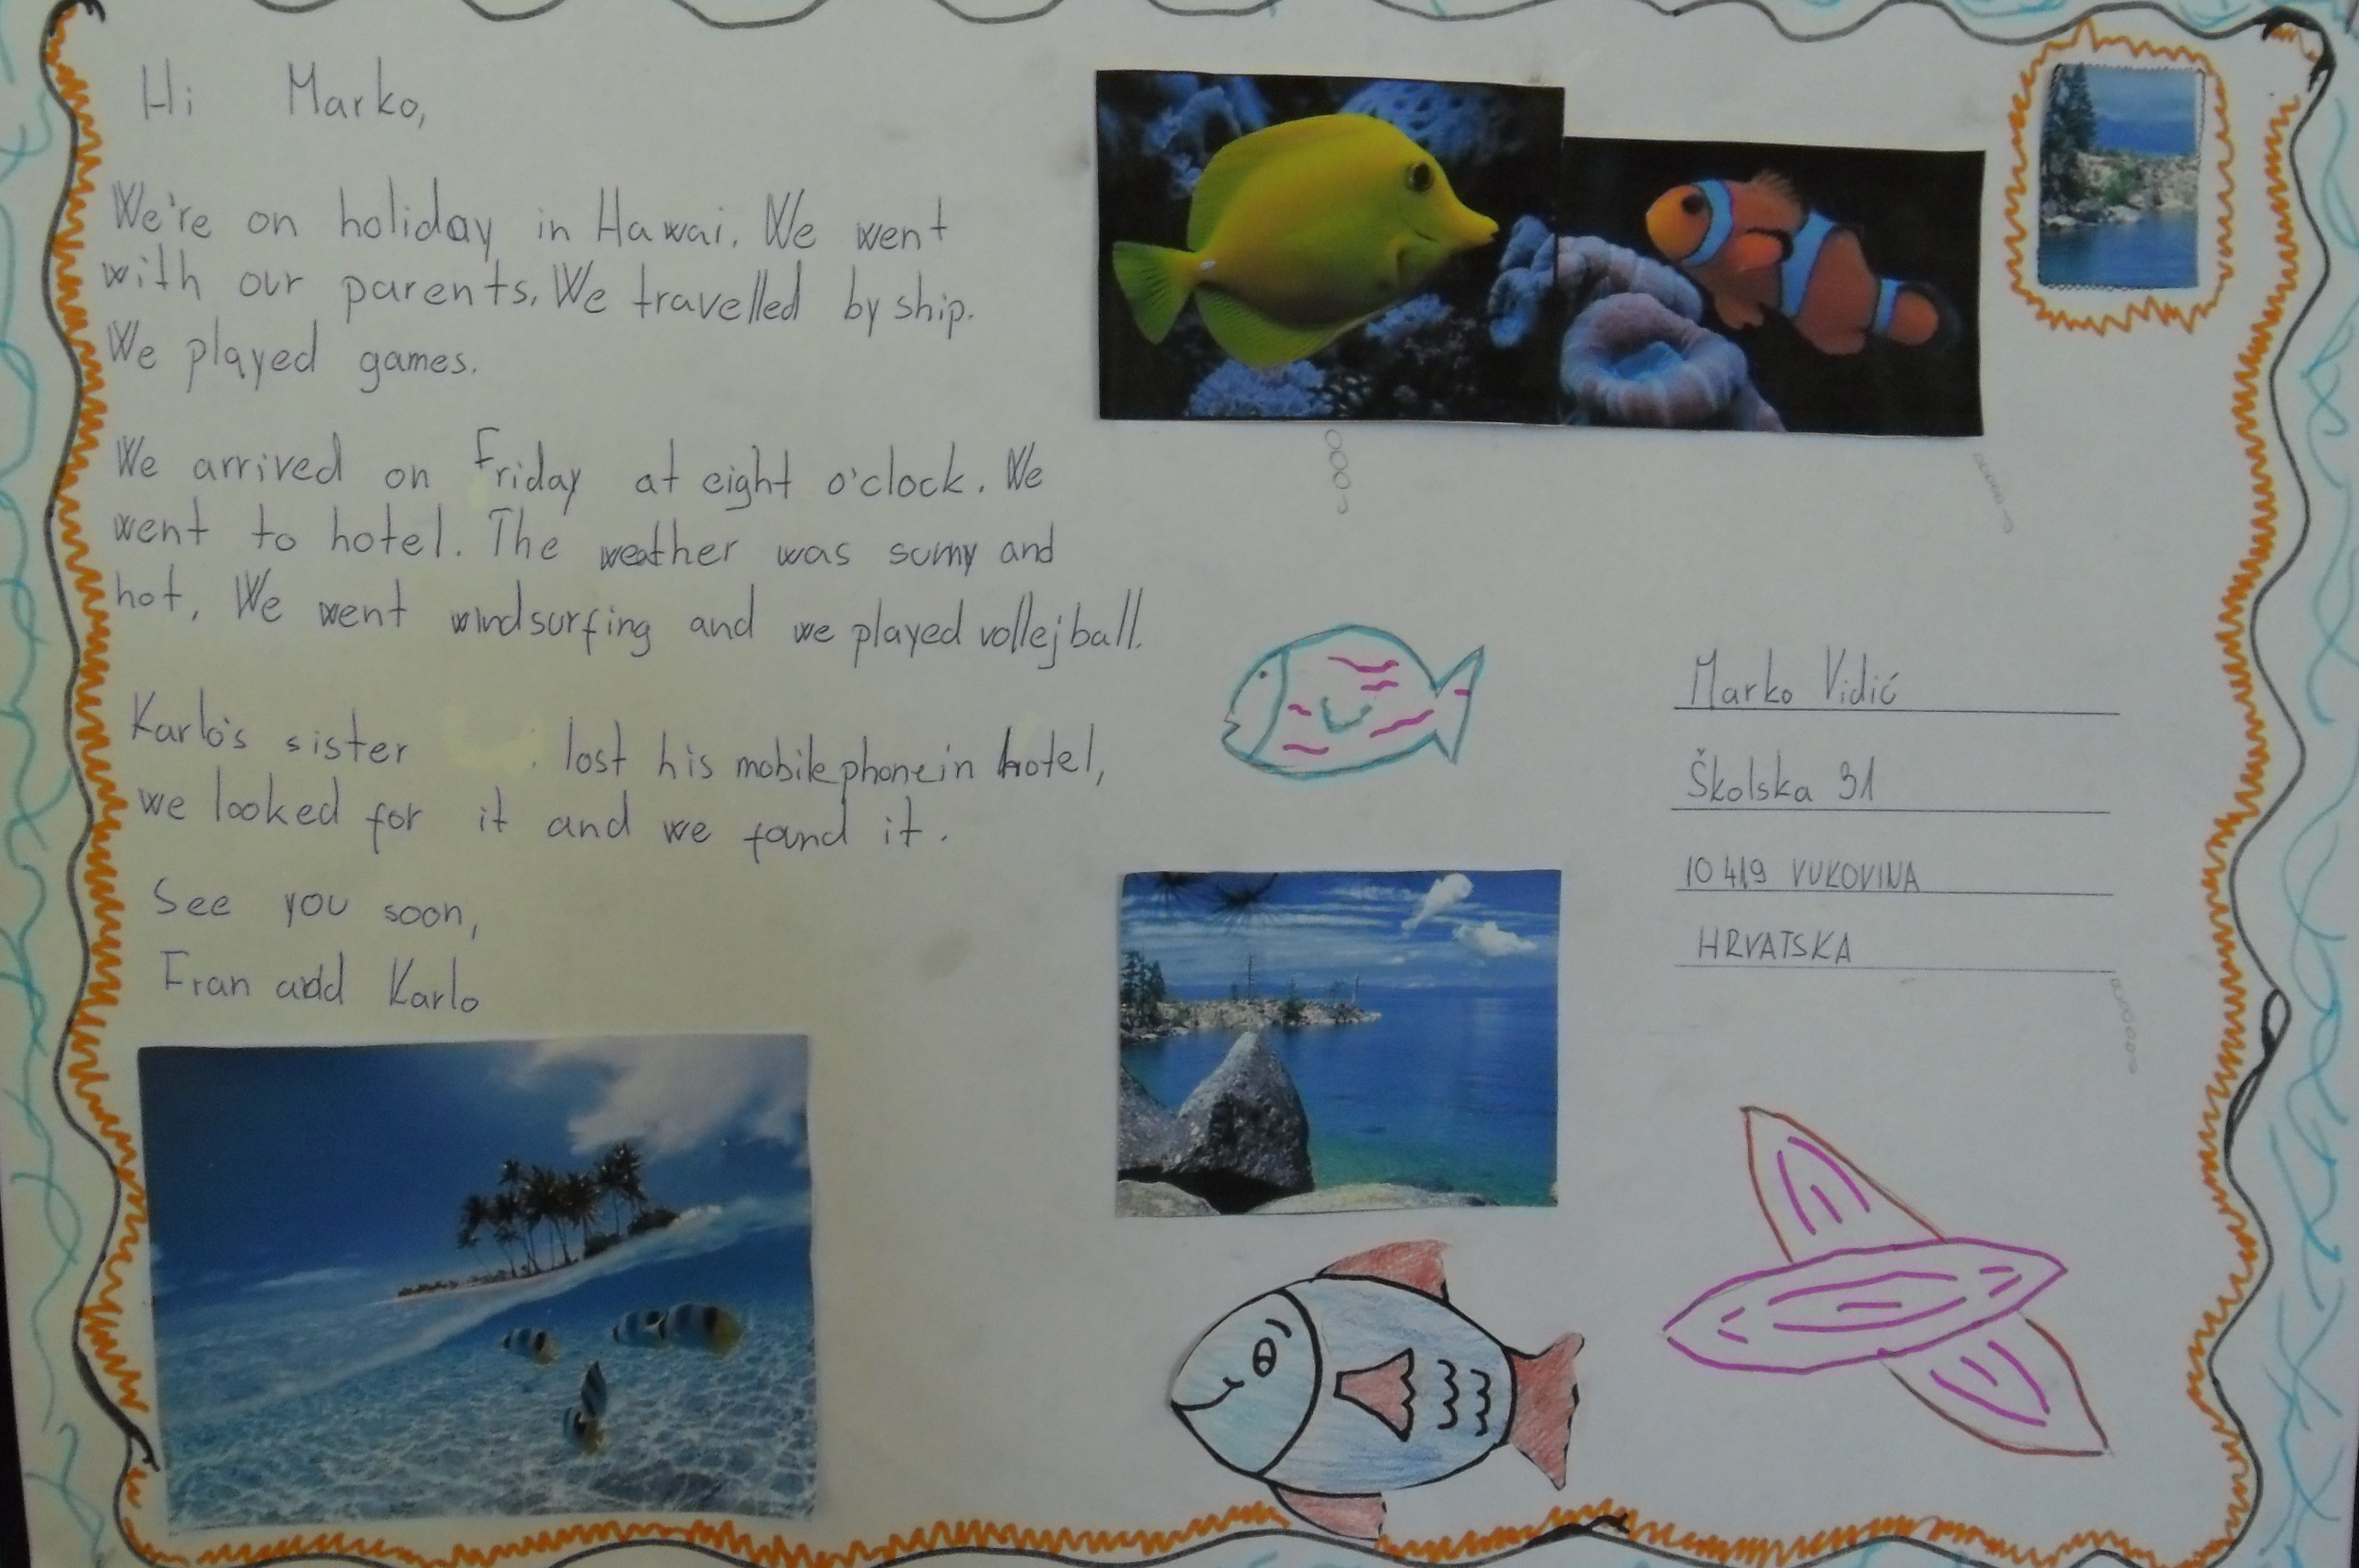 Hi Marko,
We're on holiday in Hawai. We went
with our parents. We travelled by ship.
We played games.
We arrived on Friday at eight o'clock. We
went to hotel. The weather was sunny and
hot. We went windsurfing and we played vollejball.
Karlo's sister lost his mobile phone in hotel,
we looked for it and we found it.
See you soon,
Fran and Karlo
Marko Vidić
Školska 31
10 419 VUKOVINA
HRVATSKA